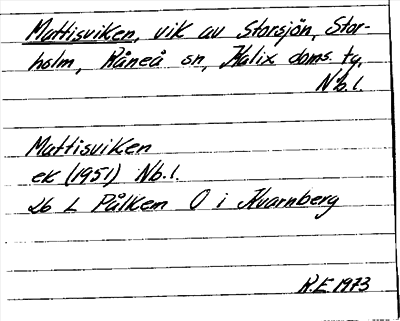 Mattisviken, vik av Storsjön, Stor-
holm, Råneå sn, Kalix doms. tg,
Nb.l.
Mattisviken
ek (1951) Nb.l.
26 L Pålkem O i Kvarnberg
R.E. 1973